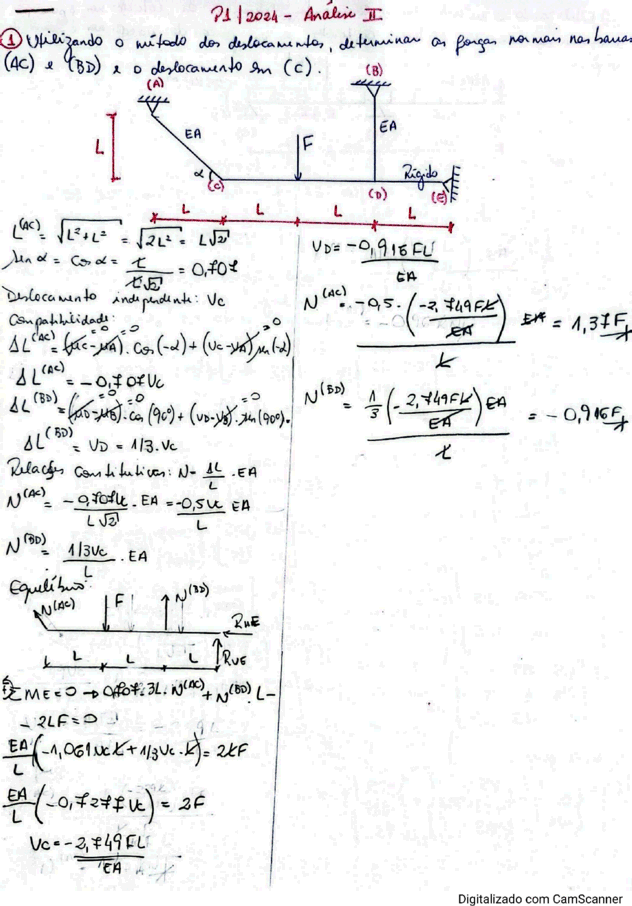 P1/2024 - Análise II
① Utilizando o método dos deslocamentos, determinar as forças normais nas barras
(AC) e (BD) e o deslocamento em (C).
(A)
(B)
EA
F
EA
L
α
(C)
(D)
Rígido
(E)
L L L L
L^(AC) = √(L²+L²) = √(2L²) = L√2
sen α = cos α = L/(L√2) = 0,707
Deslocamento independente: Vc
Compatibilidade:
ΔL^(AC) = (μC - μA).cos(-α) + (VC - μA) sen(-α)
ΔL^(AC) = -0,707Vc
ΔL^(BD) = (μD - μB).cos(90°) + (VD - VB).sen(90°).
ΔL^(BD) = VD = 1/3.Vc
Relações constitutivas: N = ΔL/L . EA
N^(AC) = -0,707Vc/(L√2) . EA = -0,5Vc/L EA
N^(BD) = (1/3Vc)/L . EA
Equilíbrio:
N^(AC) F N^(BD)
RHE
RVE
L L L
ΣME=0 → 0,707.3L.N^(AC) + N^(BD).L -
- 2LF = 0
EA/L (-1,061Vc L + 1/3Vc.L) = 2LF
EA/L (-0,7277Vc) = 2F
Vc = -2,749FL/EA
VD = -0,916FL/EA
N^(AC) = -0,5.(-2,749FL/EA) EA / L = 1,37F
N^(BD) = 1/3 (-2,749FL/EA) EA / L = -0,916F
Digitalizado com CamScanner